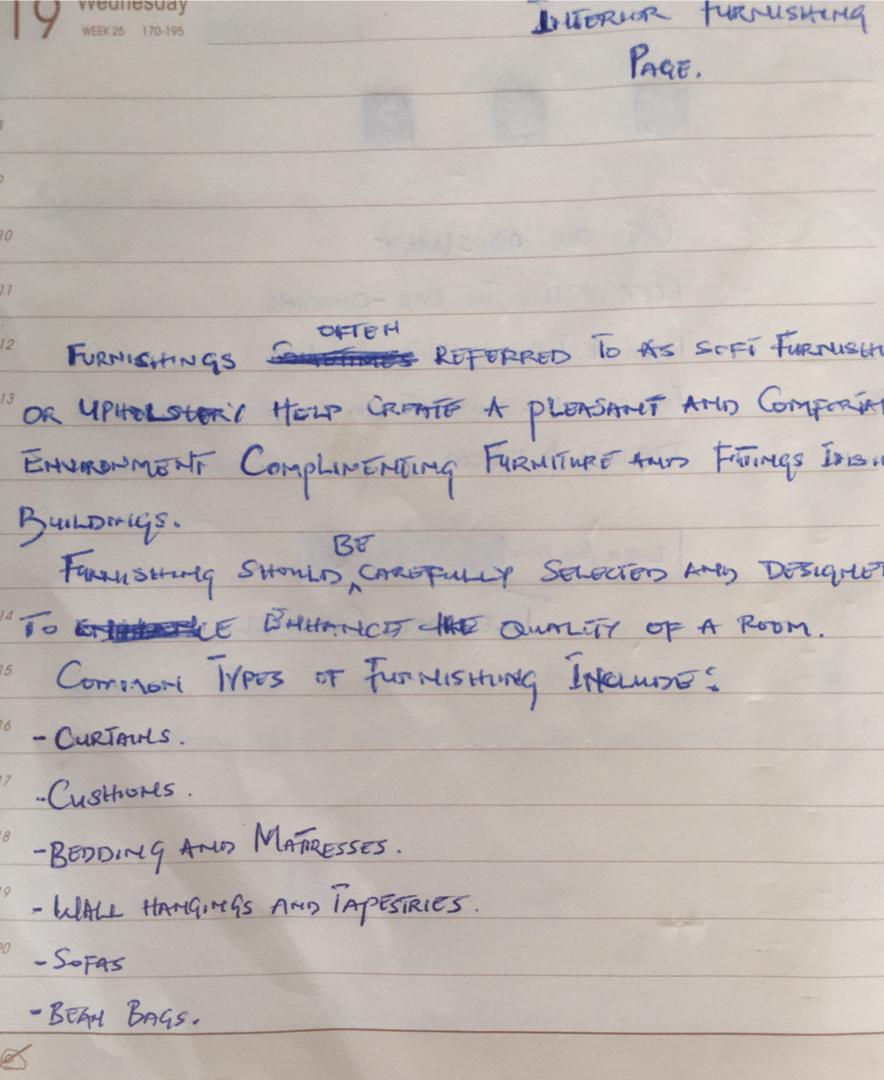 19 Wednesday
WEEK 25 170-195
INTERIOR FURNISHING
PAGE.
10
11
OFTEN
12 FURNISHINGS REFERRED TO AS SOFT FURNISHI
13 OR UPHOLSTERY HELP CREATE A PLEASANT AND COMFORTA
ENVIRONMENT COMPLIMENTING FURNITURE AND FITTINGS INSI
BUILDINGS.
BE
FURNISHING SHOULD CAREFULLY SELECTED AND DESIGNED
14 TO ENHANCE THE QUALITY OF A ROOM.
15 COMMON TYPES OF FURNISHING INCLUDE:
16 - CURTAINS.
17 - CUSHIONS.
18 - BEDDING AND MATTRESSES.
19 - WALL HANGINGS AND TAPESTRIES.
20 - SOFAS
- BEAN BAGS.